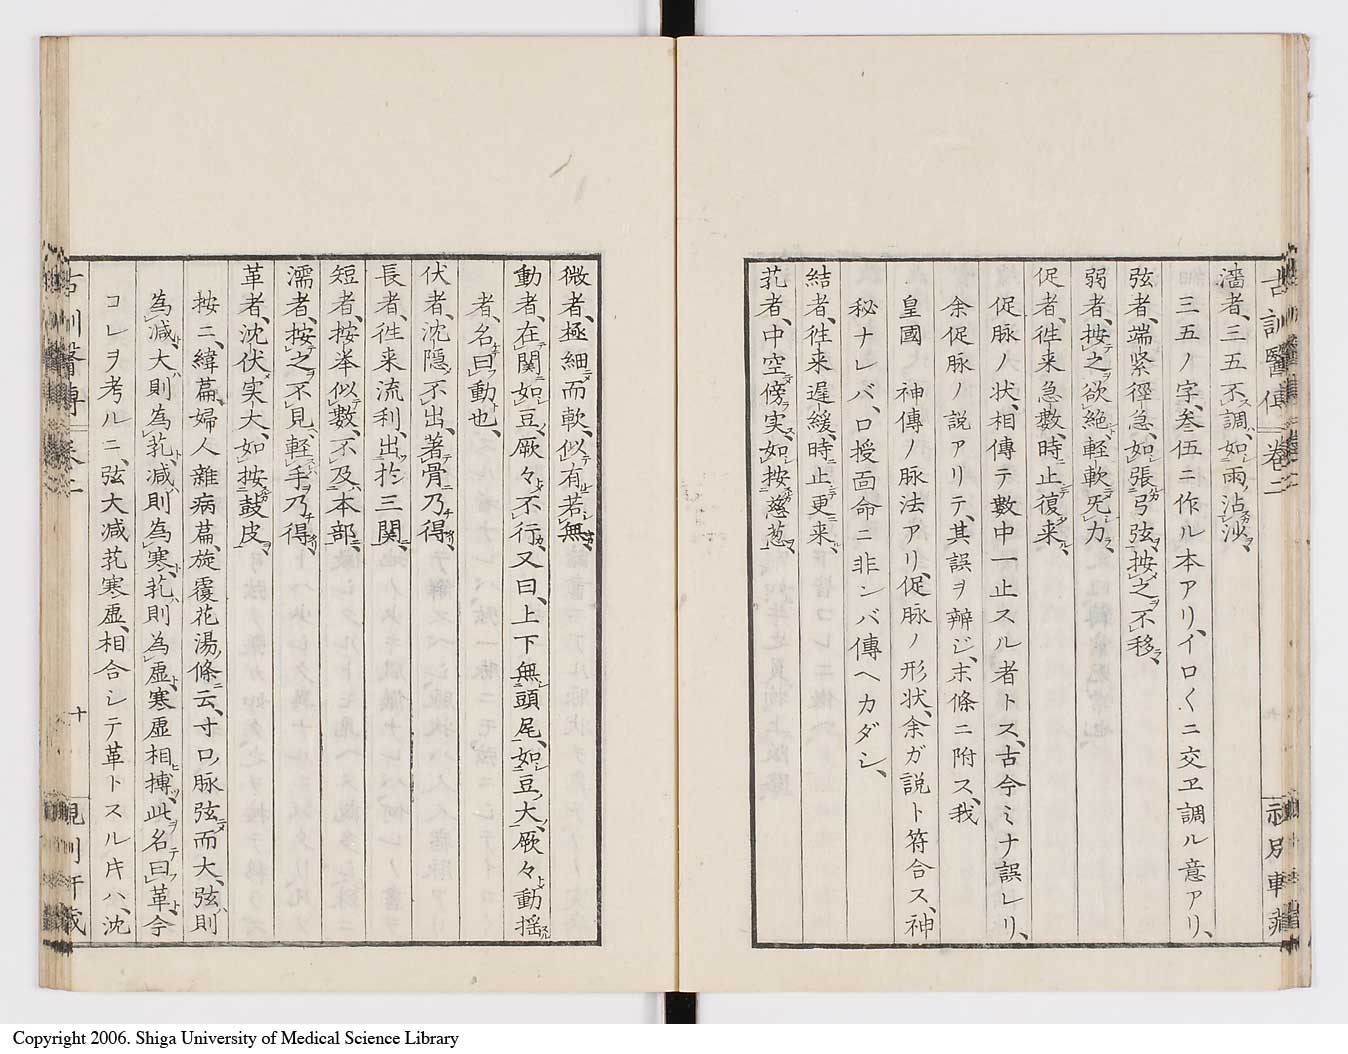 濇者、三五不調、如雨沾沙、
三五ノ字、叅伍ニ作ル本アリ、イロ〱ニ交ヱ調ル意アリ、
弦者、端緊徑急、如張弓弦、按之不移、
弱者、按之欲絶、軽軟旡力、
促者、徃来急數、時止復来、
促脉ノ状、相傳テ數中一止スル者トス、古今ミナ誤レリ、
余促脉ノ説アリテ、其誤ヲ辨ジ、末條ニ附ス、我
皇國 神傳ノ脉法アリ、促脉ノ形状、余ガ説ト符合ス、神
秘ナレバ、口授面命ニ非ンバ傳ヘカダシ、
結者、徃来遅緩、時止更来、
芤者、中空傍実、如按慈葱、
古訓醫傳 卷二
微者、極細而軟、似有若無、
動者、在関如豆、厥々不行、又曰、上下無頭尾、如豆大、厥々動揺
者、名曰動也、
伏者、沈隠不出、著骨乃得、
長者、徃来流利、出扵三関、
短者、按举似數、不及本部、
濡者、按之不見、軽手乃得、
革者、沈伏実大、如按鼓皮、
按ニ、緯萹、婦人雜病萹、旋覆花湯條云、寸口脉弦而大、弦則
為減、大則為芤、減則為寒、芤則為虚、寒虚相搏、此名曰革、今
コレヲ考ルニ、弦大减芤寒虚、相合シテ革トスル𪜈ハ、沈
古訓醫傳 卷二 十